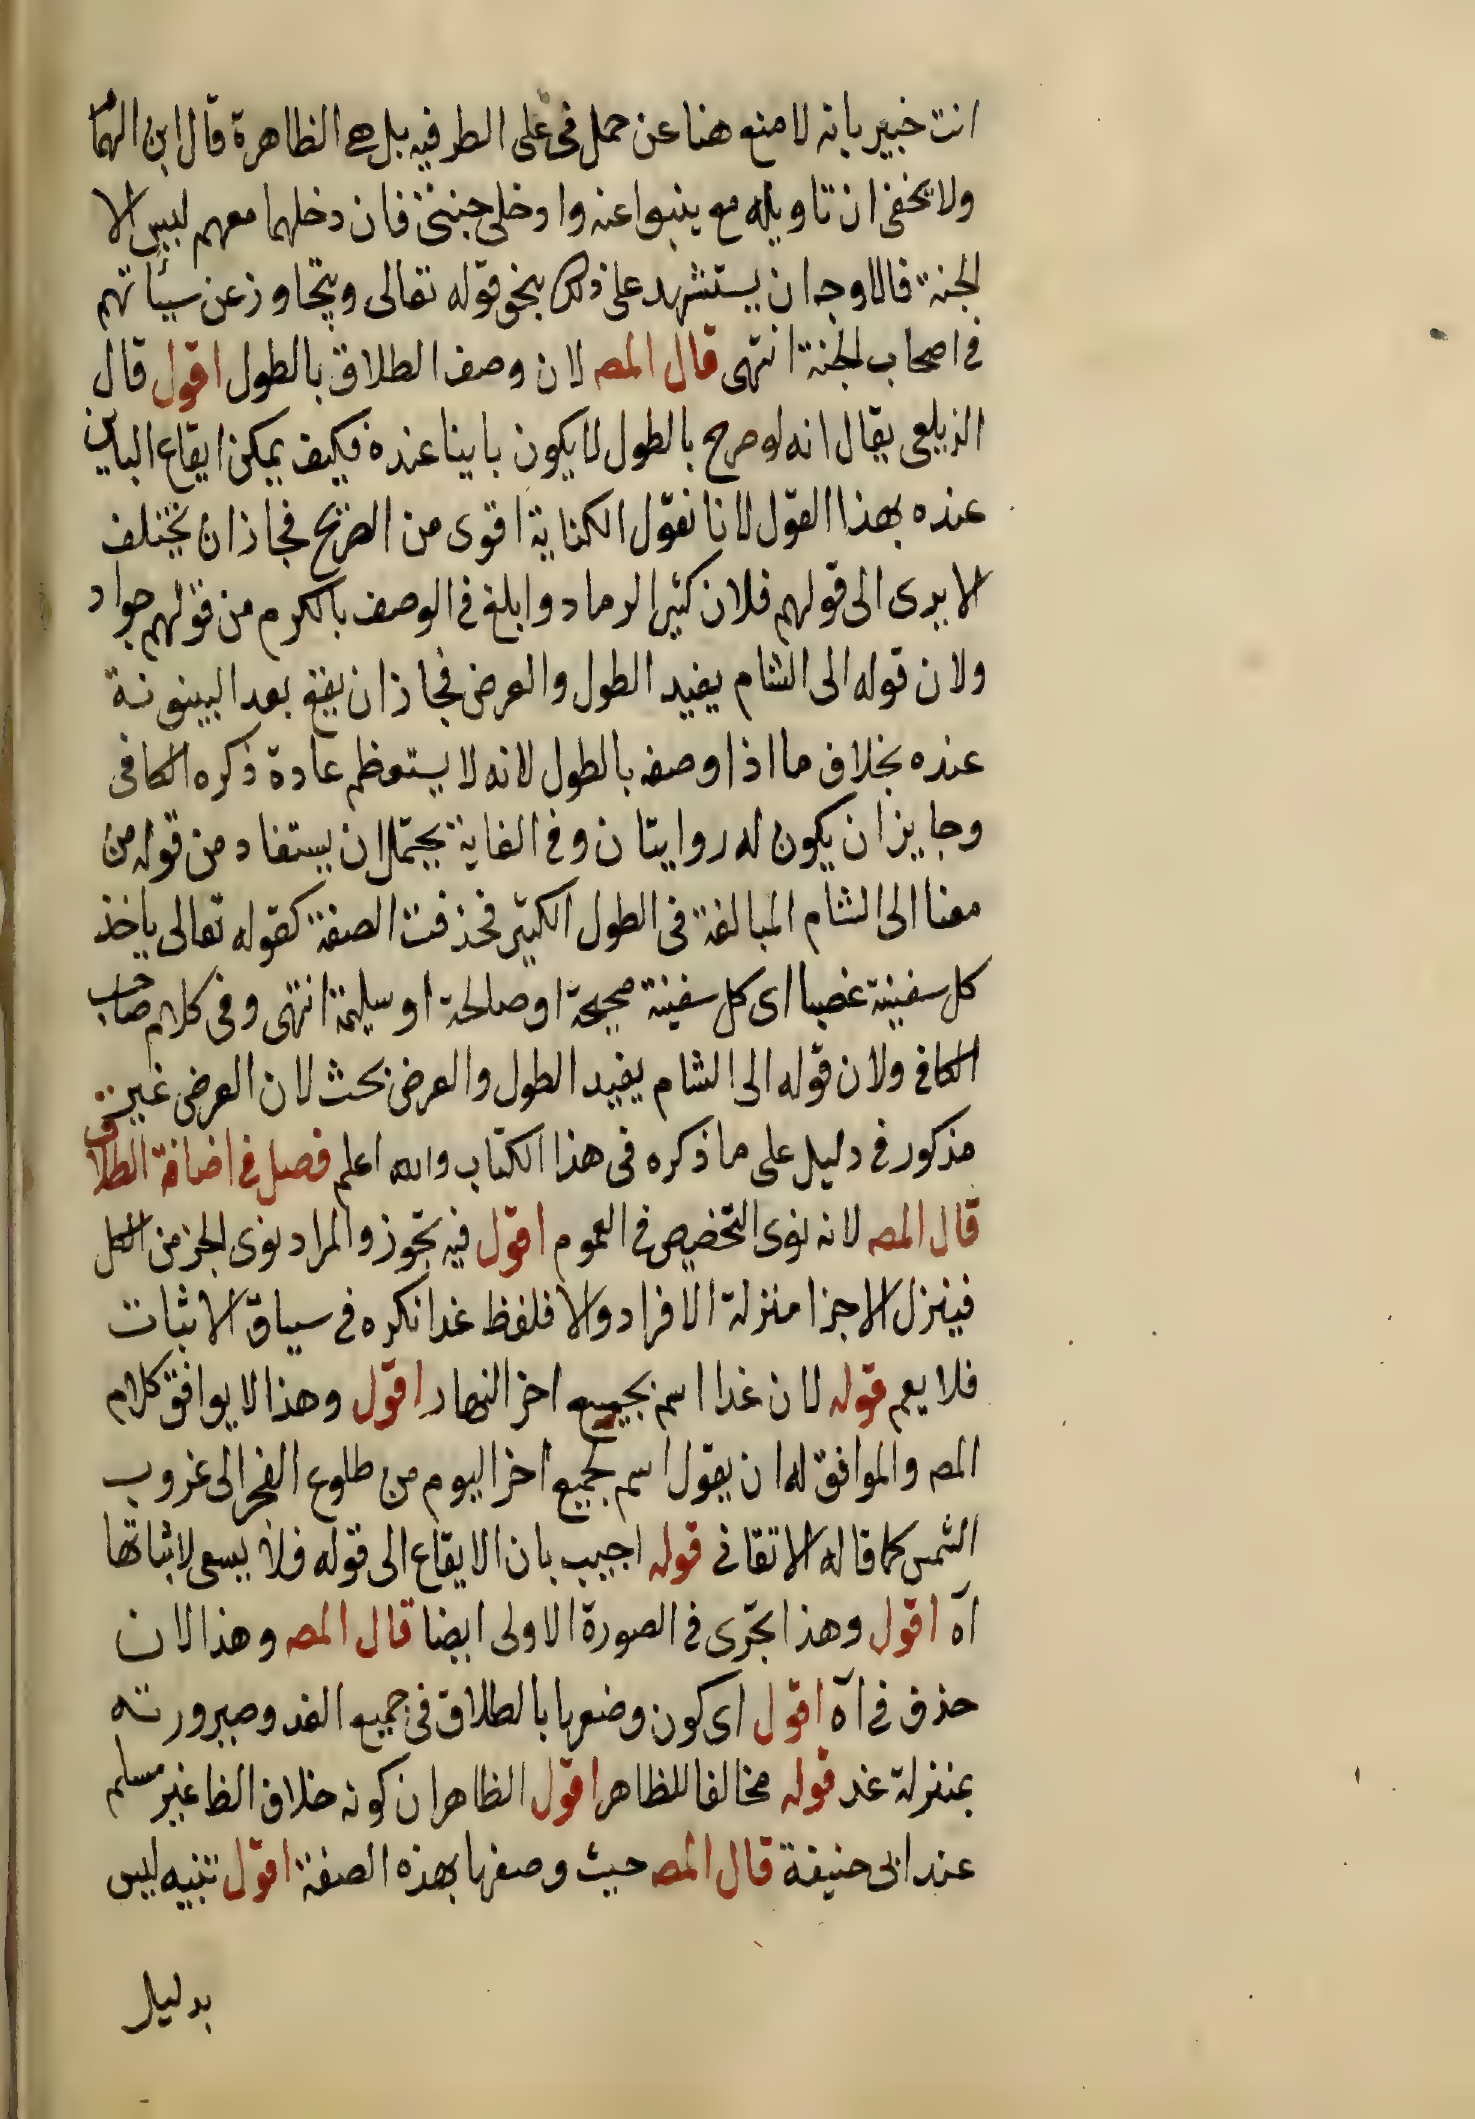 انت خبير بانه لا منع هنا عن حمل فى على الطرفيه بل هى الظاهرة قال ابن الهما
ولا يخفى ان تاويله مع ينبوا عنه وادخلى جنتى فان دخلهما معهم ليس الا
لجنة فالاوجه ان يستشهد على ذلك بنحو قوله تعالى ويتجاوز عن سيئاتهم
فى اصحاب الجنة انتهى قال المص لان وصف الطلاق بالطول اقول قال
الزيلعى يقال انه لو صرح بالطول لا يكون باينا عنده فكيف يمكن ايقاع الباين
عنده بهذا القول لانا نقول الكناية اقوى من الصريح فجاز ان يختلف
الا يرى الى قولهم فلان كثير الرماد وابلغ فى الوصف بالكرم من قولهم جواد
ولان قوله الى الشام يفيد الطول والعرض فجاز ان يقع بعد البينونة
عنده بخلاف ما اذا وصفه بالطول لانه لا يستعظم عادة ذكره الكافى
وجايز ان يكون له روايتان وفى الغاية يحتمل ان يستفاد من قوله من
هنا الى الشام المبالغة فى الطول الكثير فحذفت الصفة كقوله تعالى ياخذ
كل سفينة غصبا اى كل سفينة صحيحة او صالحة او سليمة انتهى وفى كلام صاحب
الكافى ولان قوله الى الشام يفيد الطول والعرض بحث لان العرض غير
مذكور فى دليل على ما ذكره فى هذا الكتاب والله اعلم فصل فى اضافة الطلاق
قال المص لانه نوى التخصيص فى العموم اقول فيه تجوز والمراد نوى الجز من الكل
فينزل الاجزا منزلة الافراد والا فلفظ غدا نكره فى سياق الاثبات
فلا يعم قوله لان غدا اسم بجميع اخر النهار اقول وهذا لا يوافق كلام
المص والموافق له ان يقول اسم لجميع اخر اليوم من طلوع الفجر الى غروب
الشمس كما قاله الاتقانى قوله اجيب بان الايقاع الى قوله فلا يسعى لاثباتها
آه اقول وهذا يجرى فى الصورة الاولى ايضا قال المص وهذا لان
حذف فى آه اقول اى كون وصفها بالطلاق فى جميع الغد وصيرورته
بمنزلة غد قوله مخالفا للظاهر اقول الظاهر ان كونه خلاف الظا غير مسلم
عند ابى حنيفة قال المص حيث وصفها بهذه الصفة اقول تنبيه ليس
بدليل